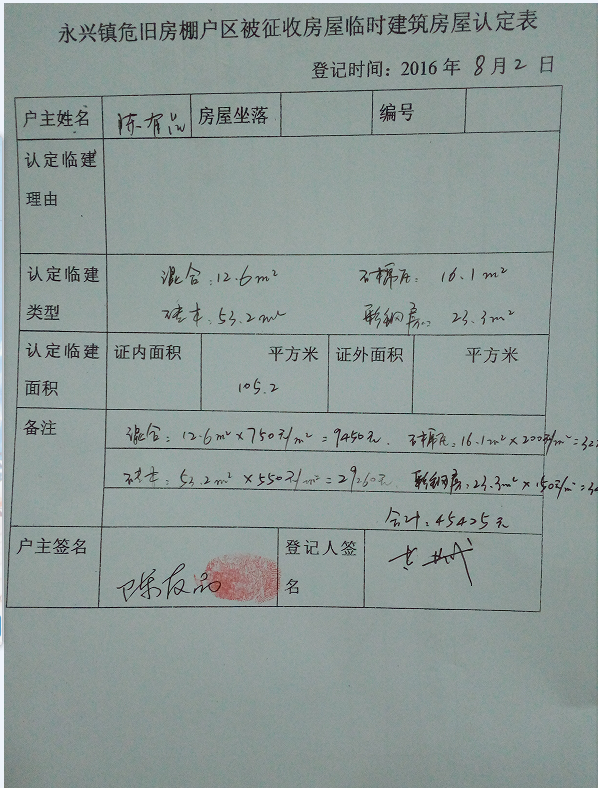 永兴镇危旧房棚户区被征收房屋临时建筑房屋认定表
登记时间：2016年8月2日
户主姓名 陈有品 房屋坐落 编号
认定临建
理由
认定临建 混合：12.6m² 石棉瓦：16.1m²
类型 砖木：53.2m² 彩钢房：23.3m²
认定临建 证内面积 平方米 证外面积 平方米
面积 105.2
备注 混合：12.6m²×750元/m²=9450元 石棉瓦：16.1m²×200元/m²=32
砖木：53.2m²×550元/m²=29260元 彩钢房：23.3m²×150元/m²=3
合计：45425元
户主签名 陈友品 登记人签
名